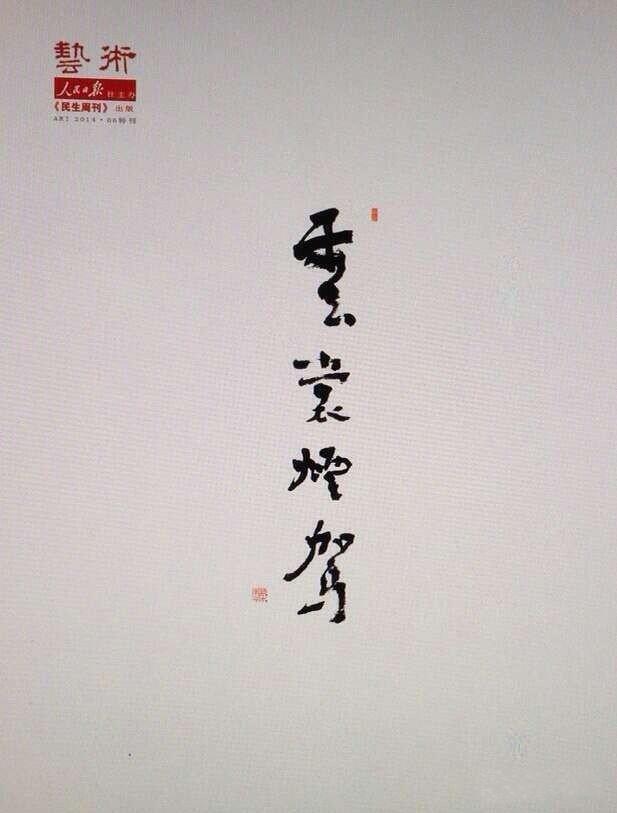 藝術
人民日报 社主办
《民生周刊》出版
ART 2014·06特刊
雲裳煙駕